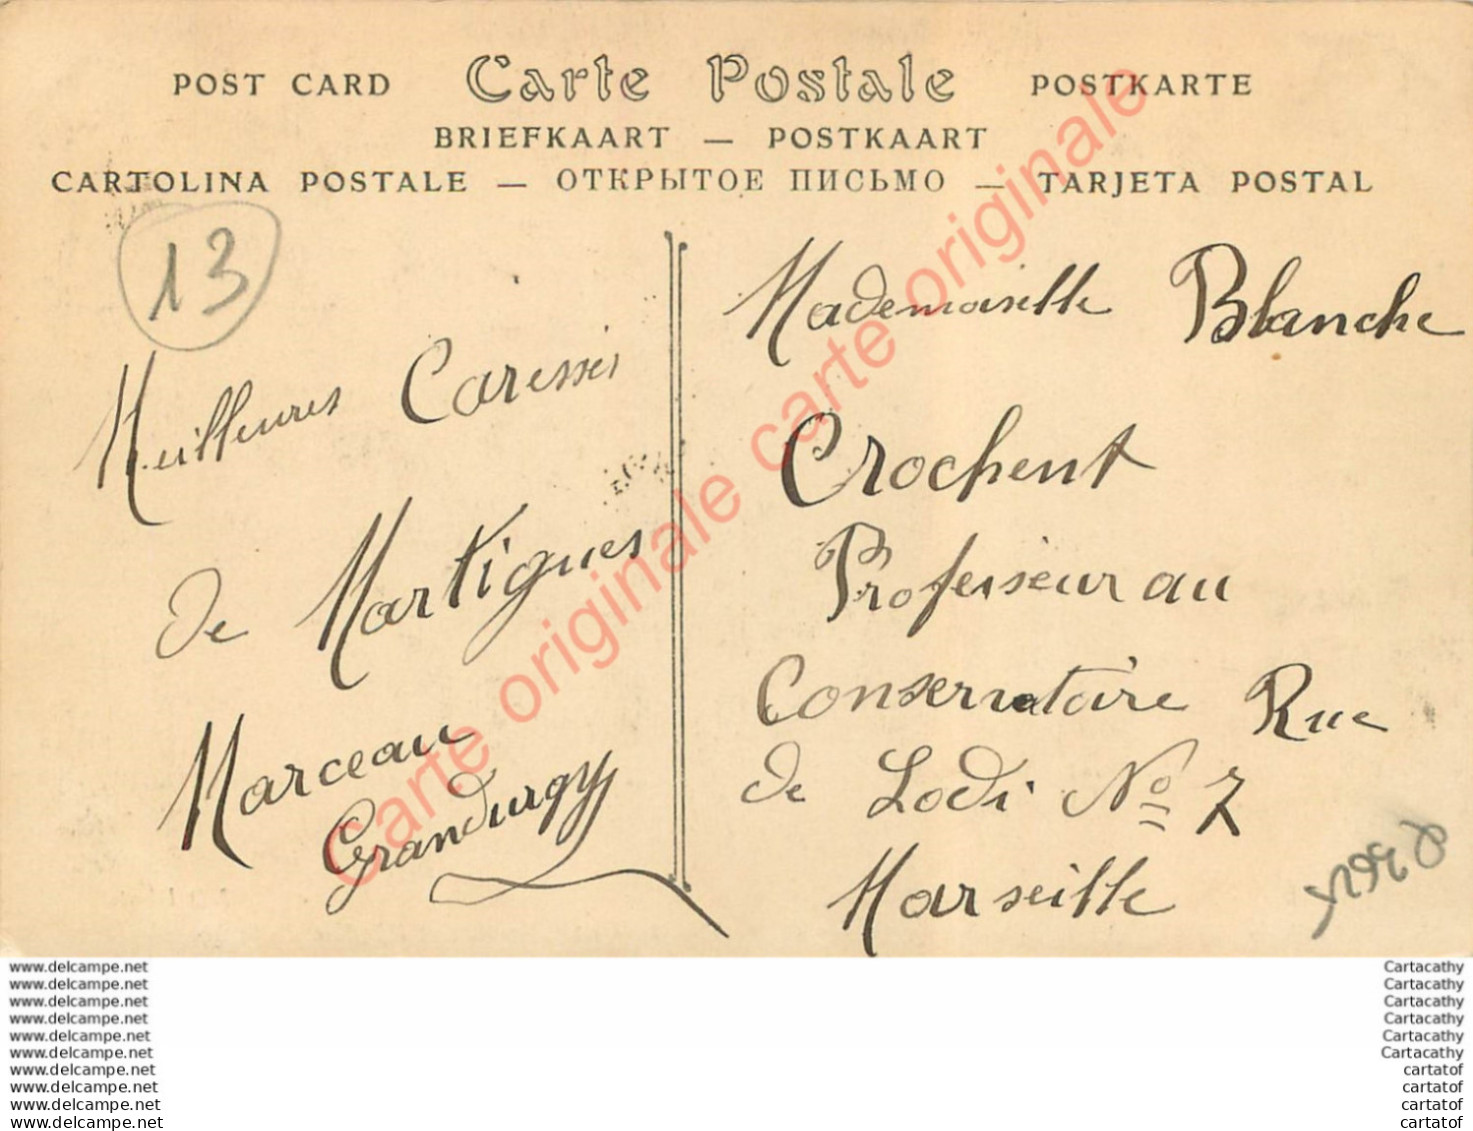 POST CARD Carte Postale POSTKARTE
BRIEFKAART — POSTKAART
CARTOLINA POSTALE — ОТКРЫТОЕ ПИСЬМО — TARJETA POSTAL
13
Meilleures Caresses
de Martigues
Marceau
Grandurgy
Mademoiselle Blanche
Crochent
Professeur au
Conservatoire Rue
de Lodi No 7
Marseille
Carte originale carte originale
www.delcampe.net
www.delcampe.net
www.delcampe.net
www.delcampe.net
www.delcampe.net
www.delcampe.net
www.delcampe.net
www.delcampe.net
www.delcampe.net
www.delcampe.net
Cartacathy
Cartacathy
Cartacathy
Cartacathy
Cartacathy
Cartacathy
cartatof
cartatof
cartatof
cartatof